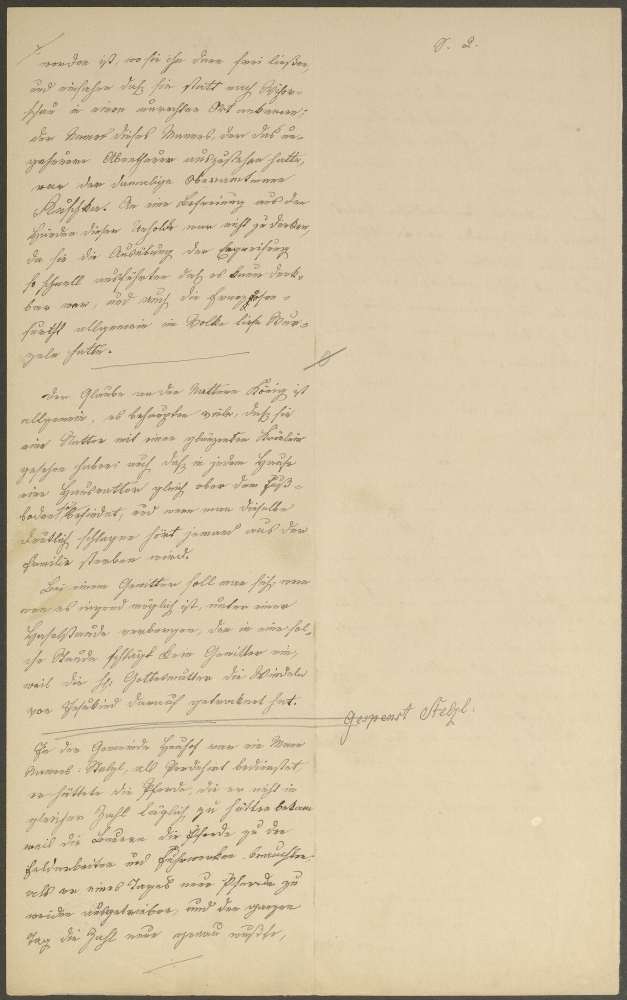 S. 2.
worden ist, wo sie ihn dann frei ließen,
und einsahen daß sie statt nach
in einen unrechten Ort ankamen;
der Name dieses Mannes, der das un-
geheuere Abentheuer auszustehen hatte,
war der damalige Oberamtmann
Ruschka. An eine Befreiung aus den
Händen dieser Unholde war nicht zu denken,
da sie die Ausübung der Ergreifung
so schnell ausführten daß es kaum denk-
bar war, und auch die
furcht allgemein im Volke tiefe Wur-
zeln hatte.
Der Glaube an den Nattern König ist
allgemein, es behaupten viele, daß sie
eine Natter mit einem glänzenden Krönlein
gesehen haben; auch daß in jedem Hause
eine Hausnatter gleich ober dem Fuß-
boden sich befindet, und wenn man dieselbe
deutlich schlagen hört jemand aus der
Familie sterben wird.
Bei einem Gewitter soll man sich, wenn
es irgend möglich ist, unter einer
Haselstaude verbergen, den in eine sol-
che Staude schlägt kein Gewitter ein,
weil die hl. Gottesmutter die Windeln
von Jesukind darauf getrocknet hat.
Gespenst Stelzl.
In der Gemeinde Haushof war ein Mann
Namens: Stelzl, als Pferdehirt bedienstet,
er hüttete die Pferde, die er nicht in
gleicher Zahl täglich zu hütten bekam
weil die Bauern die Pferde zu den
Feldarbeiten und Fuhrwerken brauchten.
als er eines Tages neun Pferde zu
weiden ausgetrieben, und den ganzen
Tag die Zahl neun genau wußte,